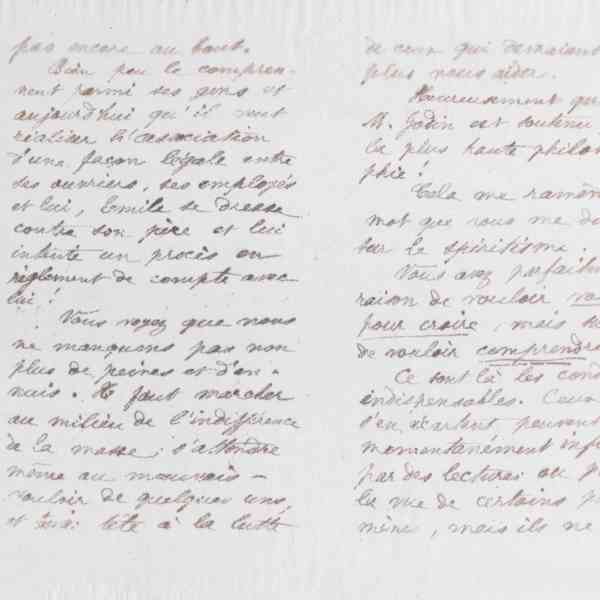 pas encore au bout.
Bien peu le compren-
nent parmi ses gens et
aujourd'hui qu'il veut
réaliser l'association
d'une façon légale entre
ses ouvriers, ses employés
et lui, Emile se dresse
contre son père et lui
intente un procès en
règlement de compte avec
lui !
Vous voyez que nous
ne manquons pas non
plus de peines et d'en-
nuis. Il faut marcher
au milieu de l'indifférence
de la masse, s'attendre
même au mauvais-
vouloir de quelques uns,
et tête à la lutte
de ceux qui devraient
plus nous aider.
Heureusement que
M. Godin est soutenu
la plus haute philos
phie.
Cela me ramène
mot que vous me
sur le spiritisme.
Vous avez parfaitem
raison de vouloir
pour croire, mais
de vouloir comprendre
Ce sont là les cond
indispensables. Ceux
s'en écartent peuvent
momentanément
par des lectures ou
la vue de certains
mènes, mais ils ne